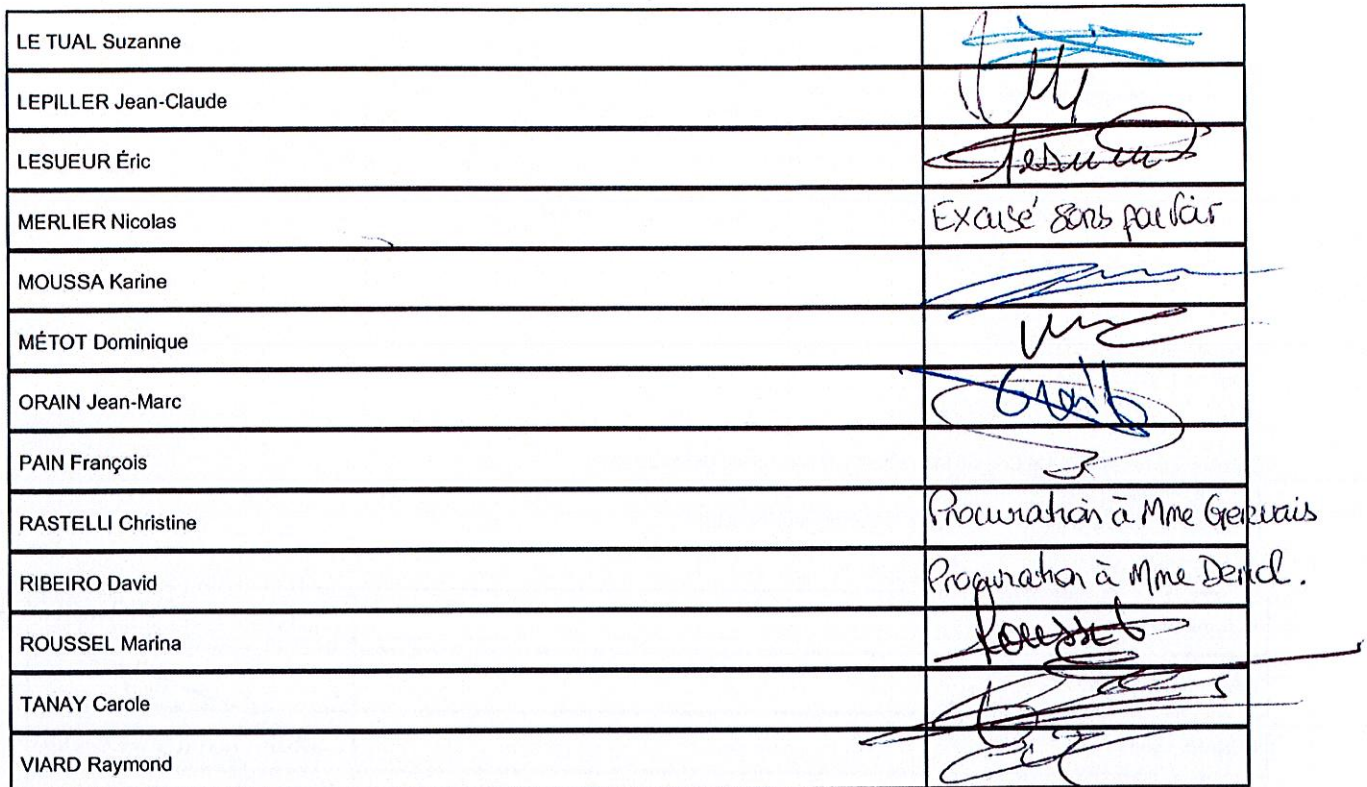 LE TUAL Suzanne
LEPILLER Jean-Claude
LESUEUR Éric
MERLIER Nicolas Excusé sans pouvoir
MOUSSA Karine
MÉTOT Dominique
ORAIN Jean-Marc
PAIN François
RASTELLI Christine Procuration à Mme Gervais
RIBEIRO David Procuration à Mme
ROUSSEL Marina Roussel
TANAY Carole
VIARD Raymond